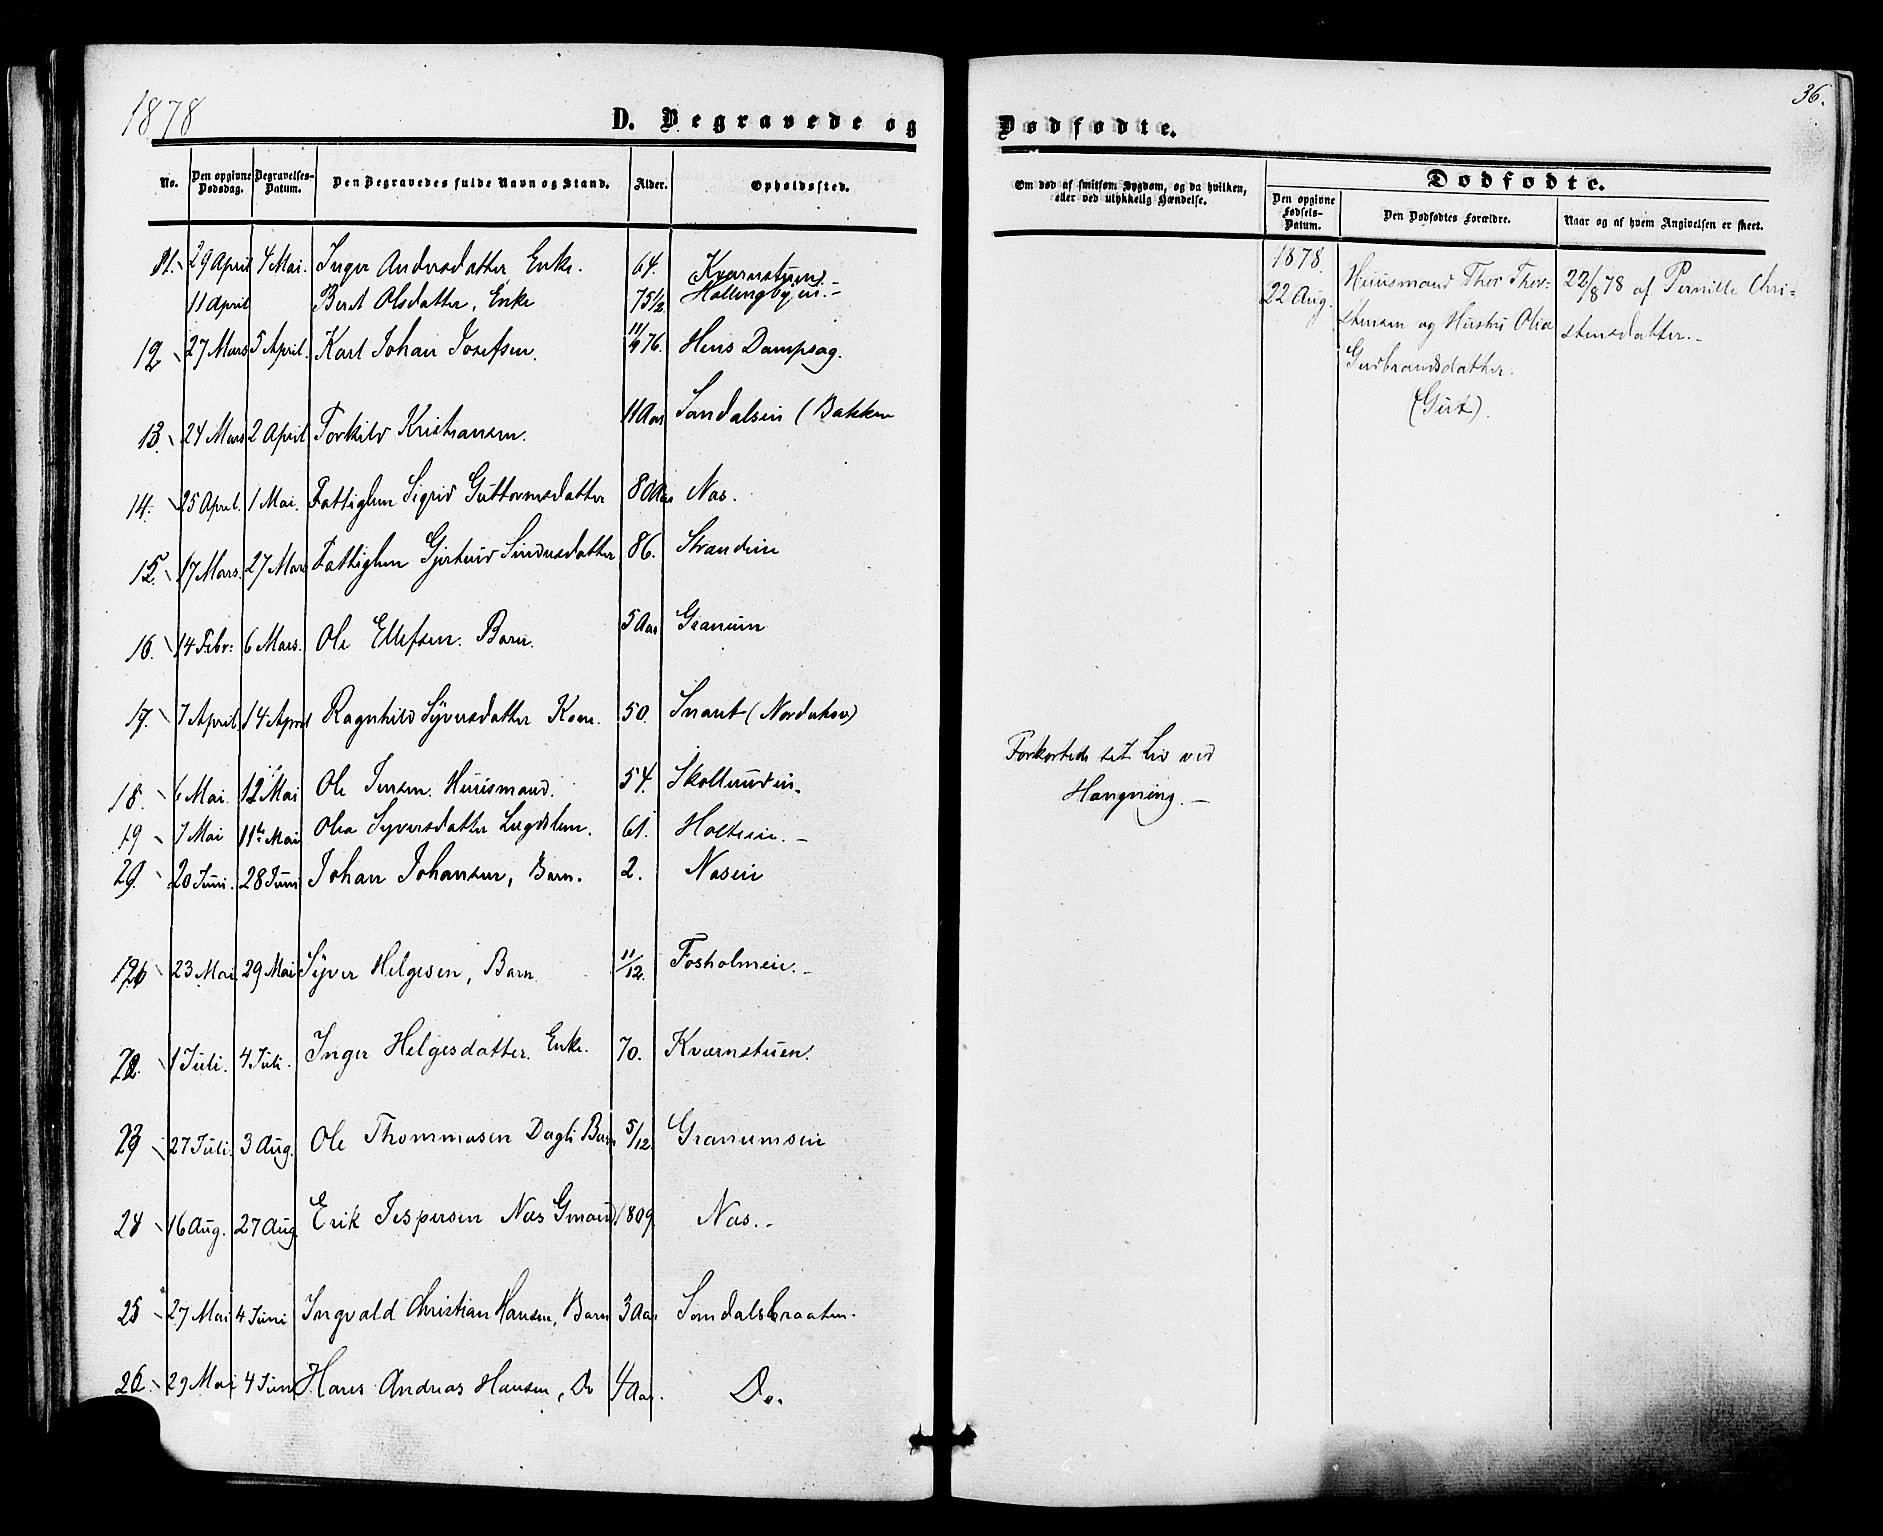 1878
D. Begravede og
No. Den opgivne Dødsdag. Begravelses-Datum. Den Begravedes fulde Navn og Stand. Alder. Opholdssted.
11. 29 April 4 Mai. Inger Andersdatter Enke. 64. Kværnstuen
11 April Berit Olsdatter, Enke 75 1/2 Hallingbyei.-
12 27 Mars 5 April. Karl Johan Josefsen. 11/4 76. Hens Dampsag.
13. 24 Mars 2 April Torkild Kristiansen. 11 Aar Somdalsei (Bakken
14. 25 April. 1 Mai. Fattiglem Sigrid Guttormsdatter 80 Aar Næs.
15. 17 Mars. 27 Mars Fattiglem Gjertrud Simensdatter 86. Strandeie
16. 14 Febr: 6 Mars. Ole Ellefsen. Barn. 5 Aar Granum
17. 7 April. 14 April Ragnhild Syversdatter Kone. 50. Snaret (Norderhov)
18. 6 Mai. 12 Mai Ole Jensen. Huusmand. 54. Skollerudei.
19 7 Mai 11te Mai Olea Syversdatter Lægdslem. 61. Holteie.-
20. 20 Juni. 28 Juni Johan Johansen, Barn. 2. Næsei
23 Mai 29 Mai Syver Helgesen, Barn. 11/12. Fosholmei.-
22. 1 Juli. 4 Juli. Inger Helgesdatter. Enke. 70. Kværnstuen.
23 27 Juli. 3 Aug. Ole Thommasen Dagli Barn 5/12. Granumsei
24 16 Aug. 27 Aug. Erik Jespersen Næs Gmand 1809. Næs.-
25 27 Mai 4 Juni Ingvald Christian Hansen, Barn 3 Aar Somdalsbraaten.
26. 29 Mai 4 Juni Hans Andreas Hansen, Do 4 Aar. Do.
36.
Dødfødte.
Om død af smitsom Sygdom, og da hvilken, eller ved ulykkelig Hændelse.
Dødfødte.
Den opgivne Fødsels-Datum. Den Dødfødtes Forældre. Naar og af hvem Angivelsen er skeet.
1878.
22 Aug. Huusmand Thor Thor- 22/8 78 af Pernille Chri-
stensen og Hustru Olea stensdatter.-
Gudbrandsdatter.
(Gut).
Forkortede sit Liv ved
Hængning.-